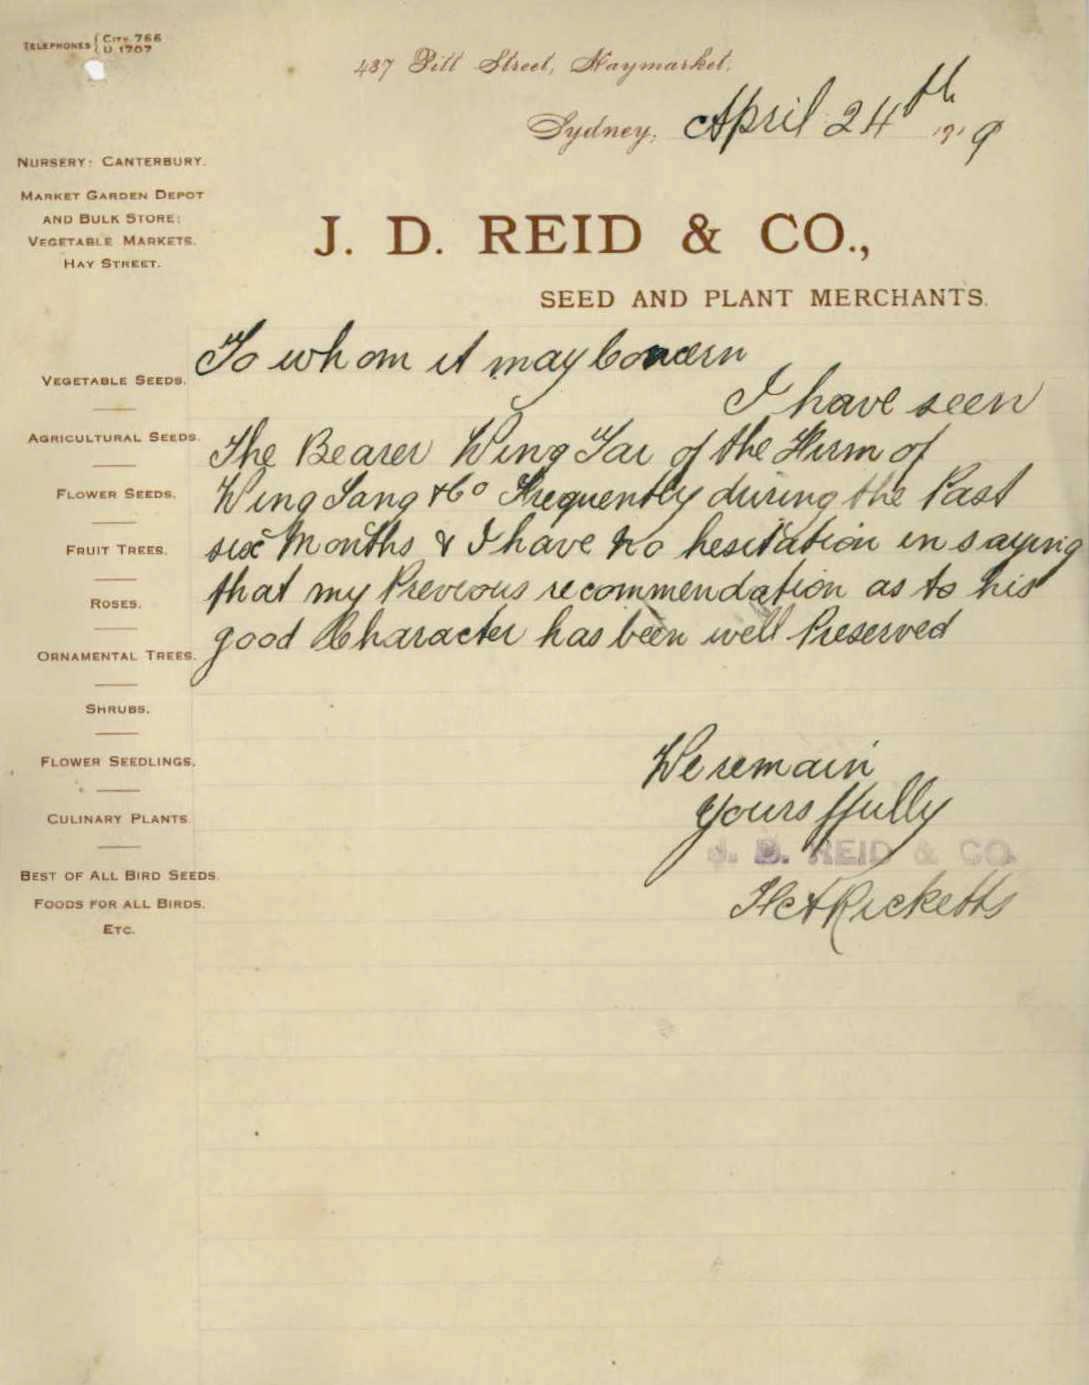 TELEPHONES { CITY 766
U 1707
437 Pitt Street, Haymarket.
Sydney, April 24th 1919
NURSERY: CANTERBURY.
MARKET GARDEN DEPOT
AND BULK STORE:
VEGETABLE MARKETS.
HAY STREET.
J. D. REID & CO.,
SEED AND PLANT MERCHANTS.
To whom it may Concern
I have seen
The Bearer Wing Tai of the Firm of
Wing Sang & Co Frequently during the Past
six Months & I have No hesitation in saying
that my Previous recommendation as to his
good Character has been well Preserved
We remain
yours ffully
J. D. REID & CO.
Ricketts
VEGETABLE SEEDS.
AGRICULTURAL SEEDS.
FLOWER SEEDS.
FRUIT TREES.
ROSES.
ORNAMENTAL TREES.
SHRUBS.
FLOWER SEEDLINGS.
CULINARY PLANTS
BEST OF ALL BIRD SEEDS.
FOODS FOR ALL BIRDS.
ETC.